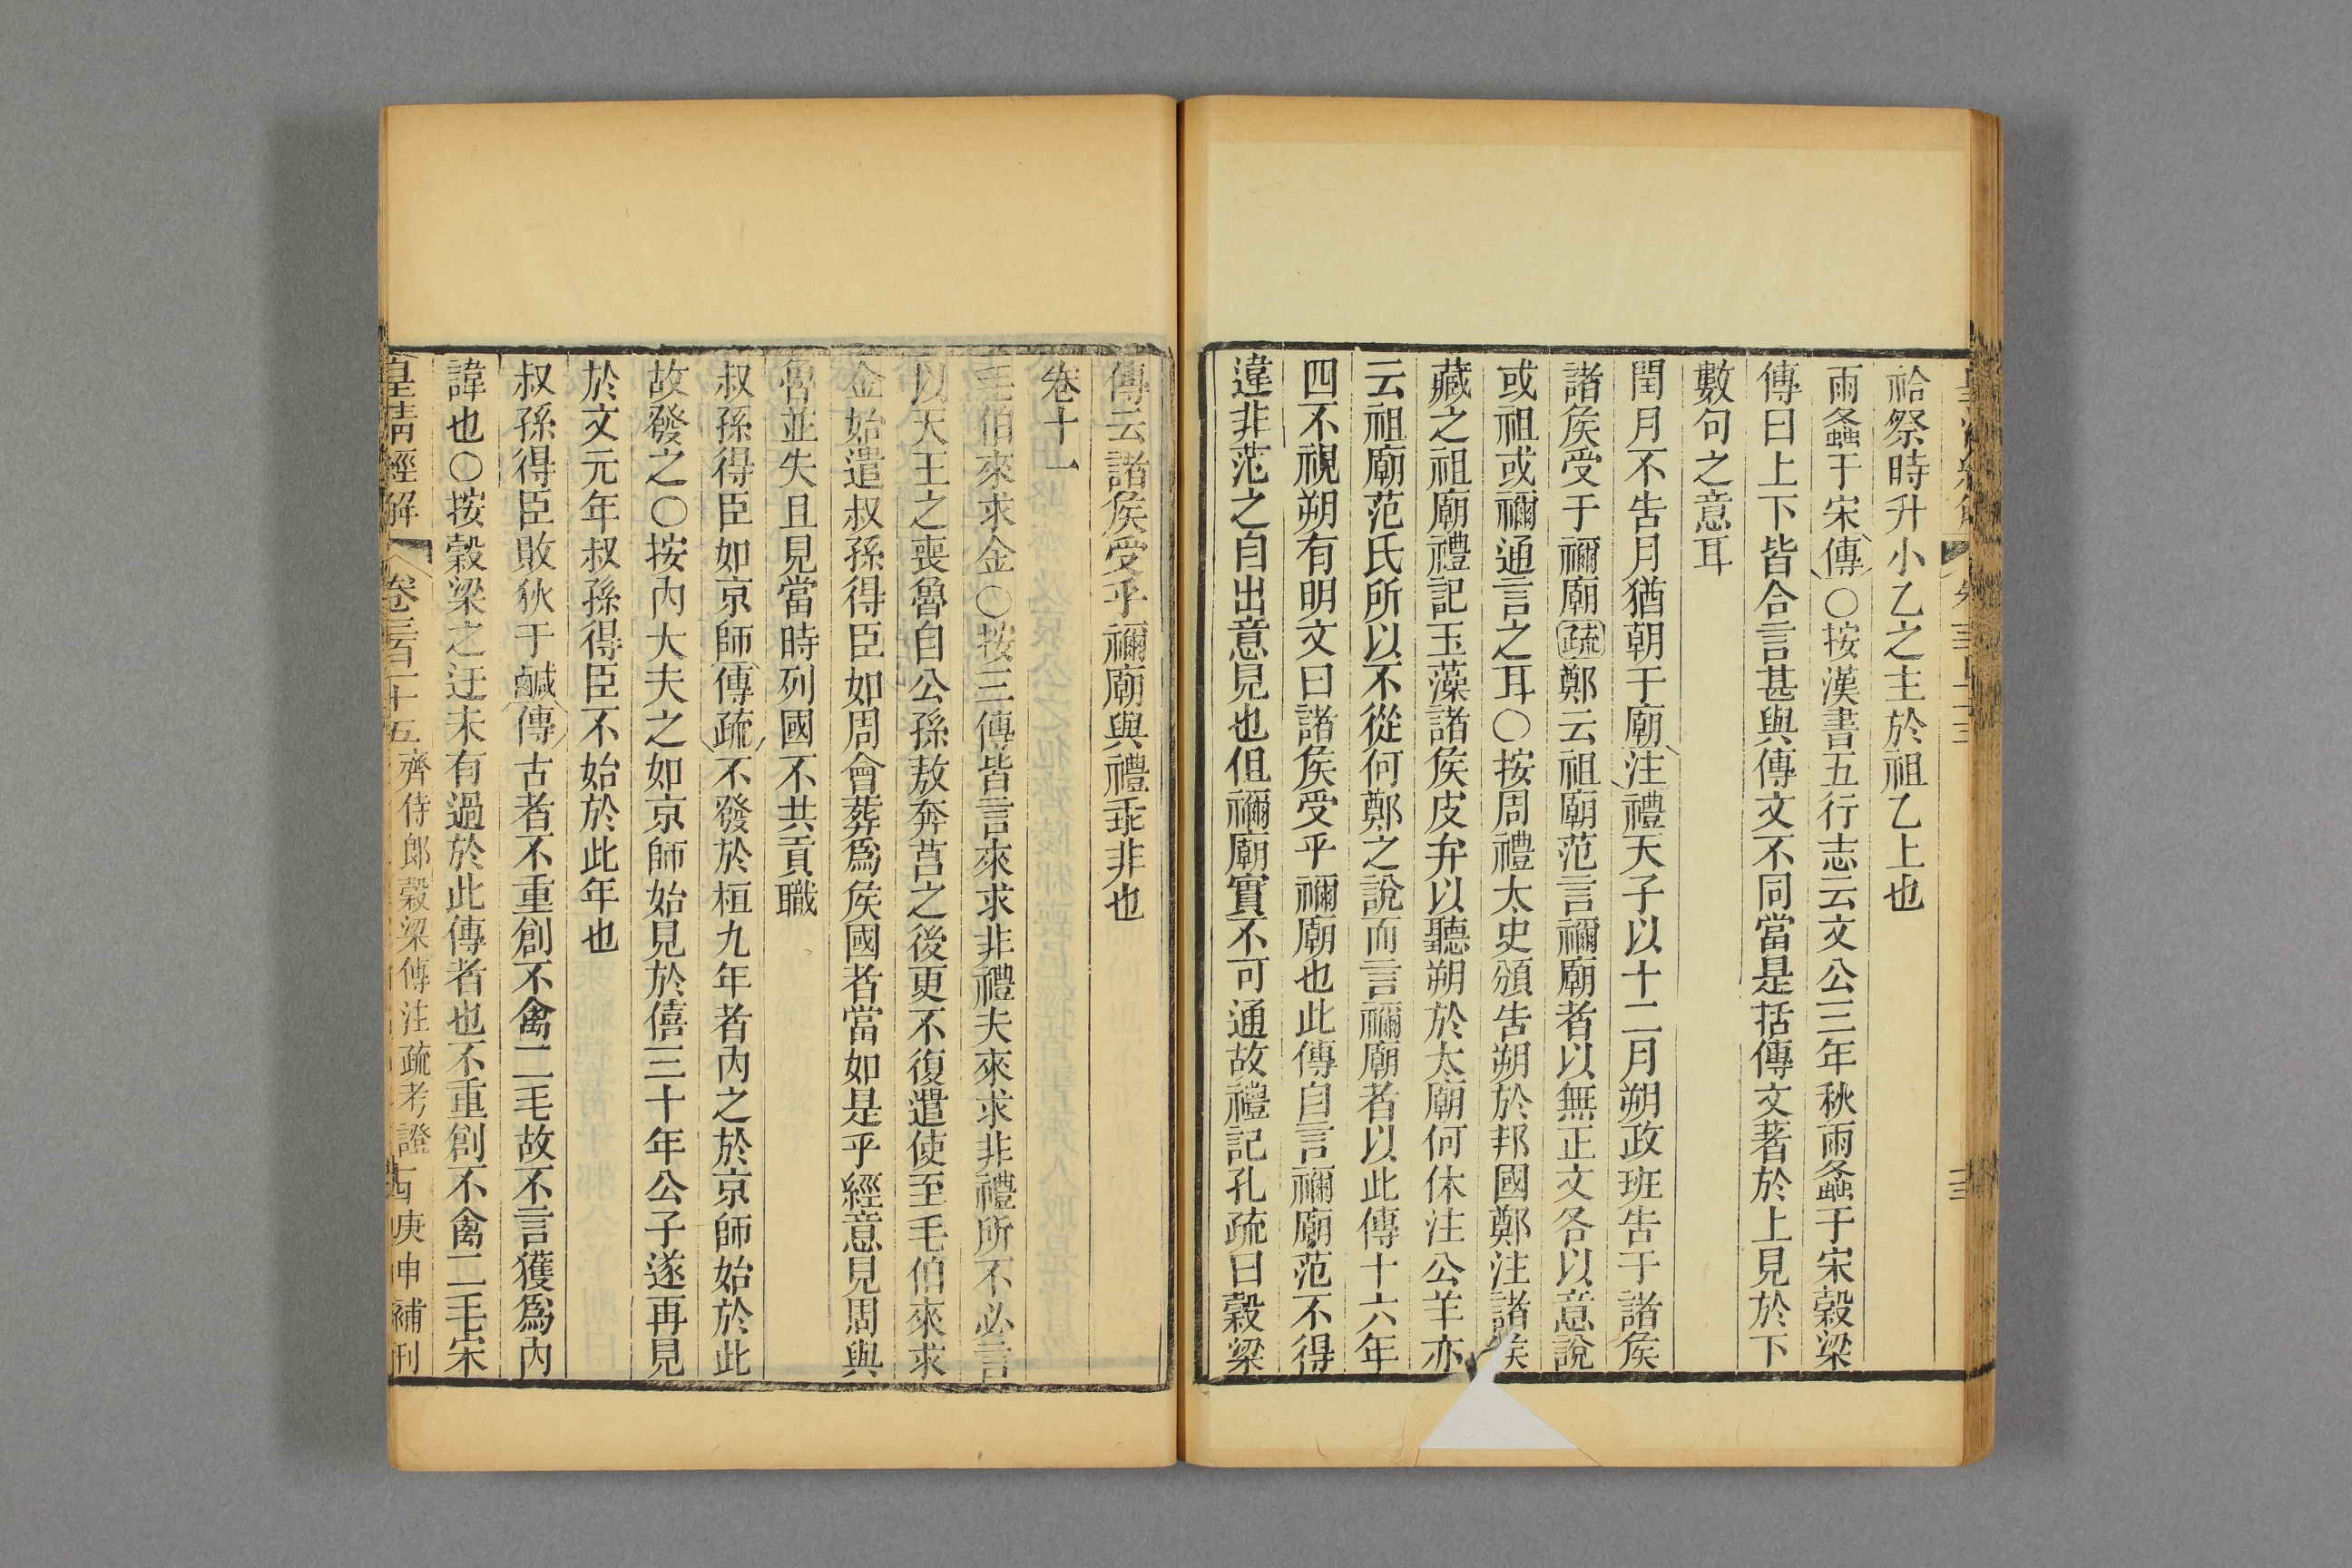 祫祭時升小乙之主於祖乙上也
雨螽于宋傳○按漢書五行志云文公三年秋雨螽于宋穀梁
傳曰上下皆合言甚與傳文不同當是括傳文著於上見於下
數句之意耳
閏月不告月猶朝于廟注禮天子以十二月朔政班告于諸侯
諸侯受于禰廟疏鄭云祖廟范言禰廟者以無正文各以意說
或祖或禰通言之耳○按周禮太史頒告朔於邦國鄭注諸侯
藏之祖廟禮記玉藻諸侯皮弁以聽朔於太廟何休注公羊亦
云祖廟范氏所以不從何鄭之說而言禰廟者以此傳十六年
四不視朔有明文曰諸侯受乎禰廟也此傳自言禰廟范不得
違非范之自出意見也但禰廟實不可通故禮記孔疏曰穀梁
傳云諸侯受乎禰廟與禮乖非也
卷十一
毛伯來求金○按三傳皆言來求非禮夫來求非禮所不必言
以天王之喪魯自公孫敖奔莒之後更不復遣使至毛伯來求
金始遣叔孫得臣如周會葬爲侯國者當如是乎經意見周與
魯並失且見當時列國不共貢職
叔孫得臣如京師傳疏不發於桓九年者內之於京師始於此
故發之○按內大夫之如京師始見於僖三十年公子遂再見
於文元年叔孫得臣不始於此年也
叔孫得臣敗狄于鹹傳古者不重創不禽二毛故不言獲爲內
諱也○按穀梁之迂未有過於此傳者也不重創不禽二毛宋
皇清經解 卷三百二十五 齊侍郎穀梁傳注疏考證 古 庚申補刊